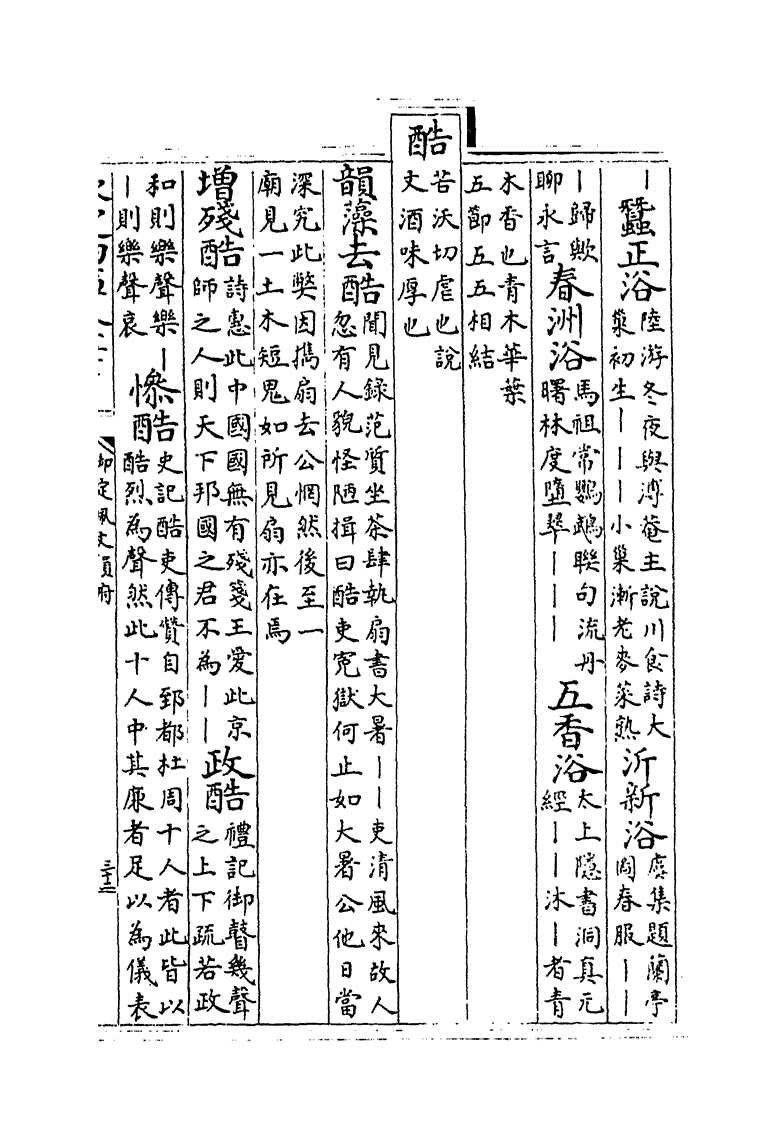 丨蠶正浴陸游冬夜與溥菴主說川食詩大巢初生丨丨丨小巢漸老麥菜熟沂新浴虞集題蘭亭圖春服丨丨
丨歸歟聊永言春洲浴馬祖常鸚鵡聯句流丹曙林度墮翠丨丨丨五香浴太上隱書洞真元經丨丨沐丨者青
木香也青木華葉五節五五相結
酷苦沃切虐也說文酒味厚也
韻藻去酷聞見錄范質坐茶肆執扇書大暑丨丨吏清風來故人忽有人貌怪陋揖曰酷吏寃獄何止如大暑公他日當
深究此獘因攜扇去公惘然後至一廟見一土木短鬼如所見扇亦在焉
增殘酷詩惠此中國國無有殘箋王愛此京師之人則天下邦國之君不為丨丨政酷禮記御瞽幾聲之上下疏若政
和則樂聲樂丨丨則樂聲哀慘酷史記酷吏傳贊自郅都杜周十人者此皆以酷烈為聲然此十人中其廉者足以為儀表
御定佩文韻府